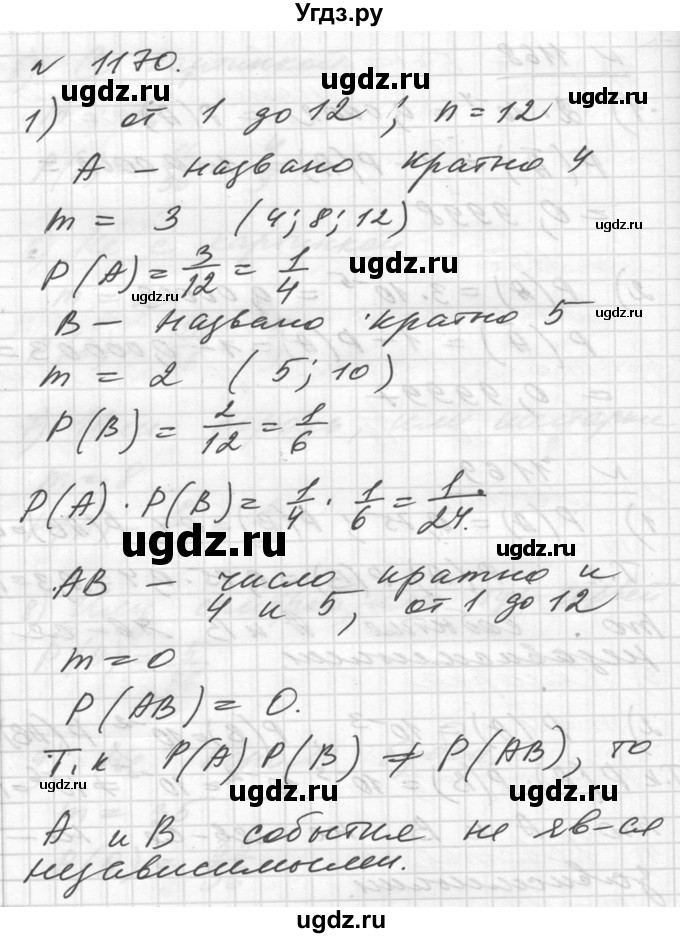 Угдз.ру
N 1170.
ugdz.ru
ugdz.ru
1) от 1 до 12 ; n = 12
А – названо кратно 4
m = 3 (4; 8; 12)
ugdz.ru
P(A) = 3/12 = 1/4
ugdz.ru
ugdz.ru
B – названо кратно 5
ugdz.ru
m = 2 (5; 10)
P(B) = 2/12 = 1/6
P(A) · P(B) = 1/4 · 1/6 = 1/24.
ugdz.ru
ugdz.ru
AB – число кратно и
4 и 5, от 1 до 12
m = 0
P(AB) = 0.
Т.к P(A) P(B) ≠ P(AB), то
ugdz.ru
ugdz.ru
ugdz.ru
А и В события не яв-ся
независимыми.
ugdz.ru